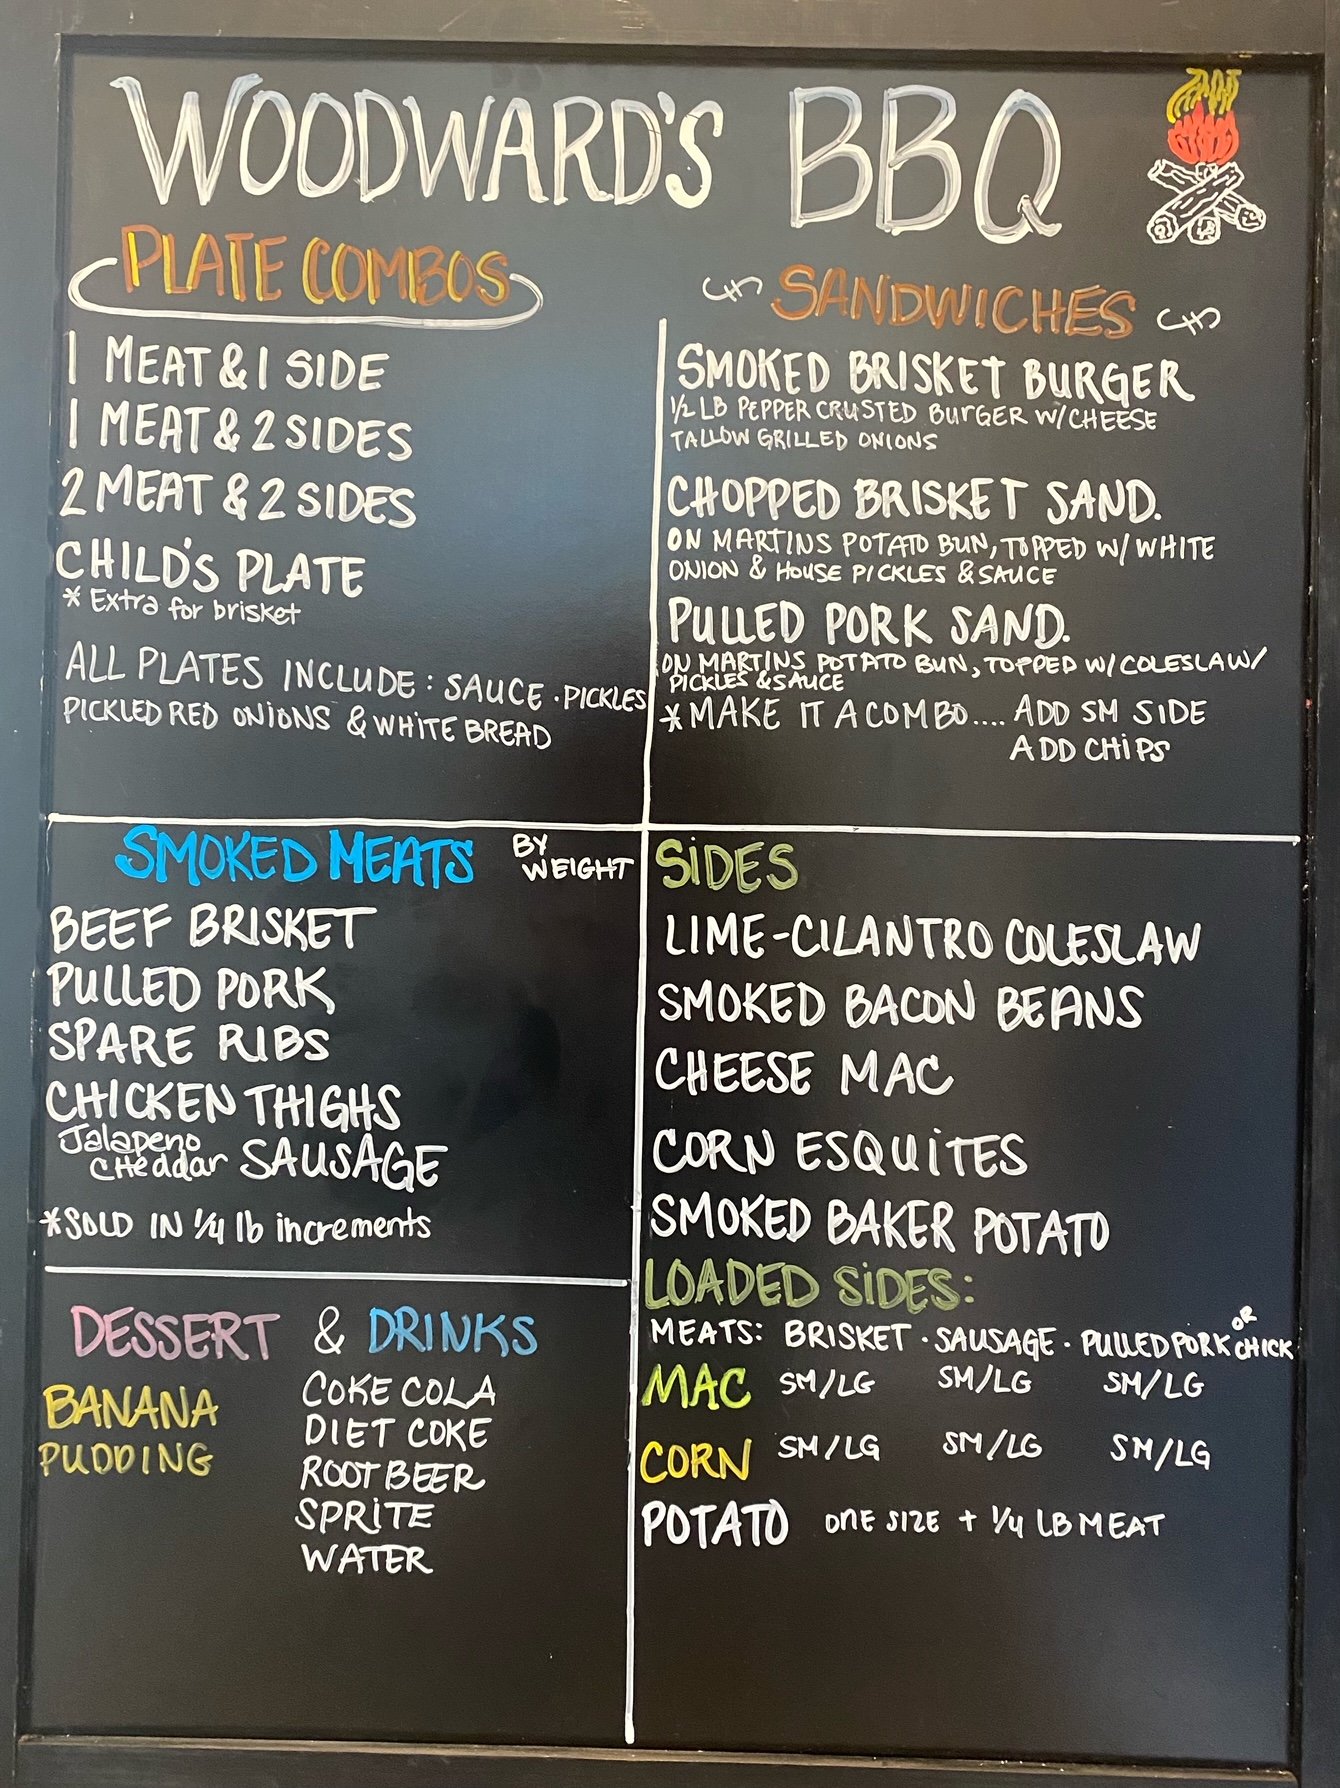 WOODWARD'S BBQ
PLATE COMBOS
1 MEAT & 1 SIDE
1 MEAT & 2 SIDES
2 MEAT & 2 SIDES
CHILD'S PLATE
* Extra for brisket
ALL PLATES INCLUDE: SAUCE · PICKLES
PICKLED RED ONIONS & WHITE BREAD
SANDWICHES
SMOKED BRISKET BURGER
1/2 LB PEPPER CRUSTED BURGER W/CHEESE
TALLOW GRILLED ONIONS
CHOPPED BRISKET SAND.
ON MARTINS POTATO BUN, TOPPED W/ WHITE
ONION & HOUSE PICKLES & SAUCE
PULLED PORK SAND.
ON MARTINS POTATO BUN, TOPPED W/COLESLAW/
PICKLES & SAUCE
* MAKE IT A COMBO.... ADD SM SIDE
ADD CHIPS
SMOKED MEATS BY
WEIGHT
BEEF BRISKET
PULLED PORK
SPARE RIBS
CHICKEN THIGHS
Jalapeno
CHeddar SAUSAGE
*SOLD IN 1/4 lb increments
DESSERT & DRINKS
BANANA
PUDDING
COKE COLA
DIET COKE
ROOT BEER
SPRITE
WATER
SIDES
LIME-CILANTRO COLESLAW
SMOKED BACON BEANS
CHEESE MAC
CORN ESQUITES
SMOKED BAKER POTATO
LOADED SIDES:
MEATS: BRISKET · SAUSAGE · PULLED PORK OR CHICK
MAC SM/LG SM/LG SM/LG
CORN SM/LG SM/LG SM/LG
POTATO ONE SIZE + 1/4 LB MEAT